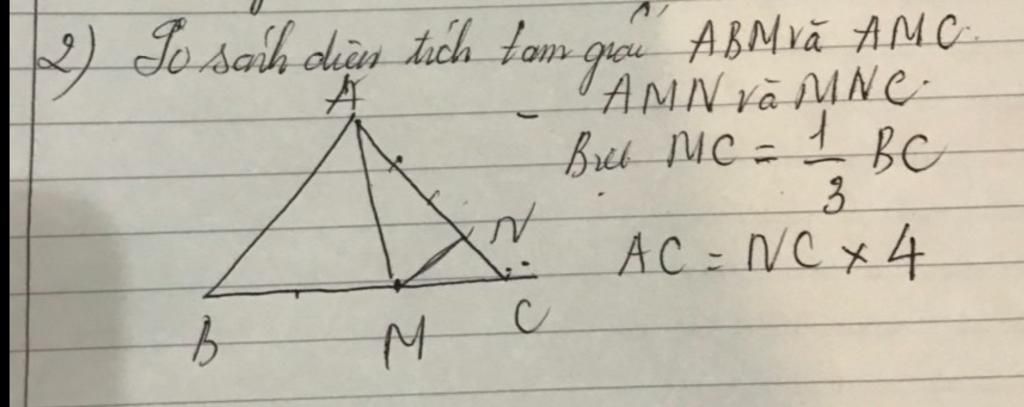 2) So sánh diện tích tam giác ABM và AMC.
A
- AMN và MNC.
Biết MC = 1/3 BC
N
AC = NC x 4
B M C